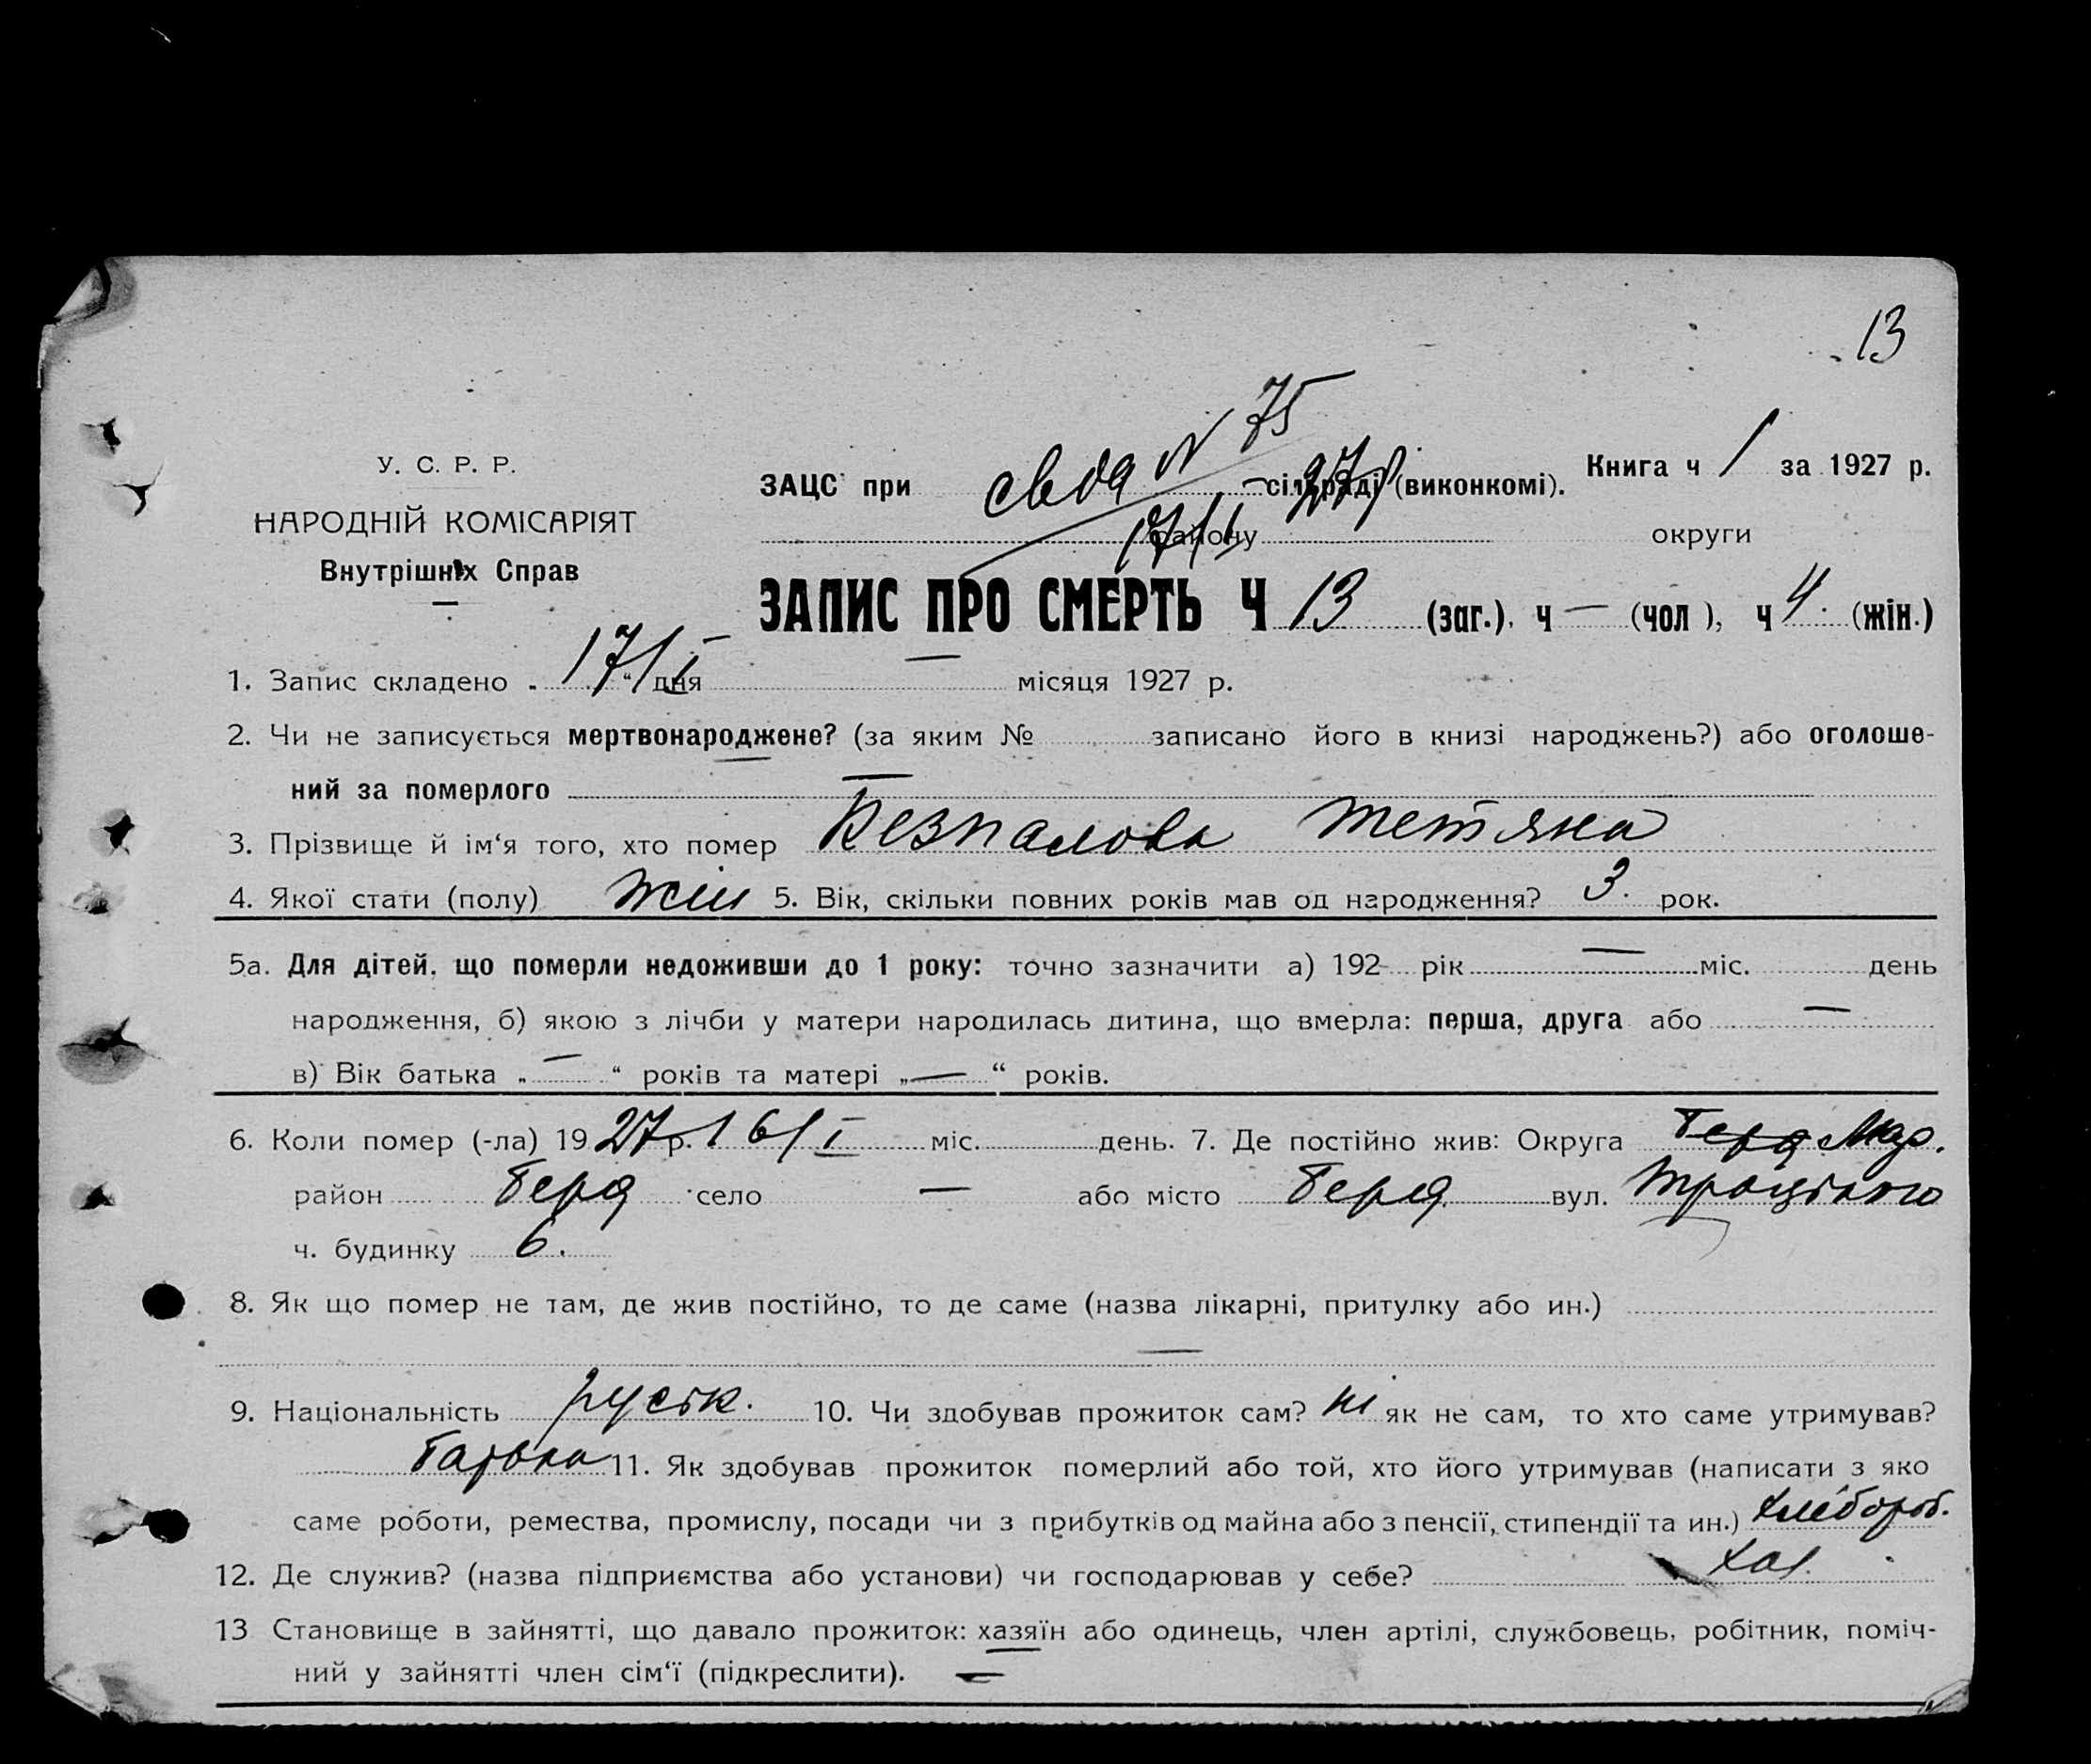 13
свид N 75
У. С. Р. Р.
ЗАЦС при сільраді (виконкомі). Книга ч 1 за 1927 р.
НАРОДНІЙ КОМІСАРІЯТ
17/I 27р
району округи
Внутрішніх Справ
ЗАПИС ПРО СМЕРТЬ Ч 13 (заг.), ч — (чол), ч 4. (жін.)
1. Запис складено „17/I“ дня — місяця 1927 р.
2. Чи не записується мертвонароджене? (за яким № записано його в книзі народжень?) або оголоше-
ний за померлого —
3. Прізвище й ім‘я того, хто помер Безпалова Тетяна
4. Якої стати (полу) жін 5. Вік, скільки повних років мав од народження? 3. рок.
5а. Для дітей, що померли недоживши до 1 року: точно зазначити а) 192- рік — міс. день
народження, б) якою з лічби у матери народилась дитина, що вмерла: перша, друга або —
в) Вік батька „—“ років та матері „—“ років.
6. Коли помер (-ла) 1927р. 16/I міс. день. 7. Де постійно жив: Округа Берд Мар.
район Берд село — або місто Берд. вул. Троцького
ч. будинку 6.
8. Як що помер не там, де жив постійно, то де саме (назва лікарні, притулку або ин.)
—
9. Національність руськ. 10. Чи здобував прожиток сам? ні як не сам, то хто саме утримував?
батько 11. Як здобував прожиток померлий або той, хто його утримував (написати з яко
саме роботи, ремества, промислу, посади чи з прибутків од майна або з пенсії, стипендії та ин.) хлібороб.
12. Де служив? (назва підприємства або установи) чи господарював у себе? хаз.
13 Становище в зайнятті, що давало прожиток: хазяїн або одинець, член артілі, службовець, робітник, поміч-
ний у зайнятті член сім‘ї (підкреслити). —